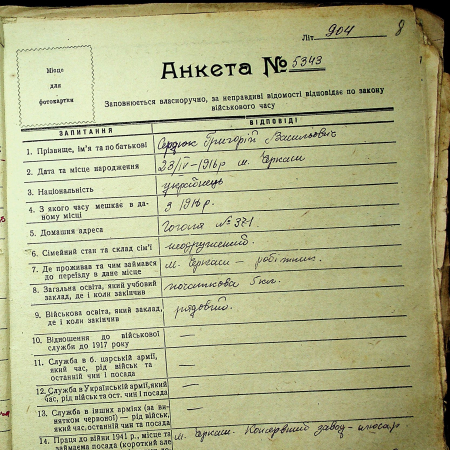 Літ. 904 8
Місце
для
фотокартки
Анкета № 5343
Заповнюється власноручно, за неправдиві відомості відповідає по закону
військового часу
ЗАПИТАННЯ ВІДПОВІДІ
1. Прізвище, ім'я та по батькові Сердюк Григорій Васильович
2. Дата та місце народження 23/IV-1916р м. Черкаси
3. Національність українець
4. З якого часу мешкає в да-
ному місці з 1916 р.
5. Домашня адреса Гоголя № 371
6. Сімейний стан та склад сім'ї неодружений.
7. Де проживав та чим займався
до переїзду в дане місце м. Черкаси – робітник.
8. Загальна освіта, який учбовий
заклад, де і коли закінчив початкова 5 кл.
9. Військова освіта, який заклад,
де і коли закінчив рядовий.
10. Відношення до військової
служби до 1917 року —
11. Служба в б. царській армії,
який час, рід військ та
останній чин і посада —
12. Служба в Українській армії, який
час, рід військ та ост. чин і посада —
13. Служба в інших арміях (за ви-
нятком червоної) — рід військ,
який час, останній чин та посада —
14. Праця до війни 1941 р., місце та
займаєма посада (короткий зве м. Черкаси. Консервний завод – слюсар